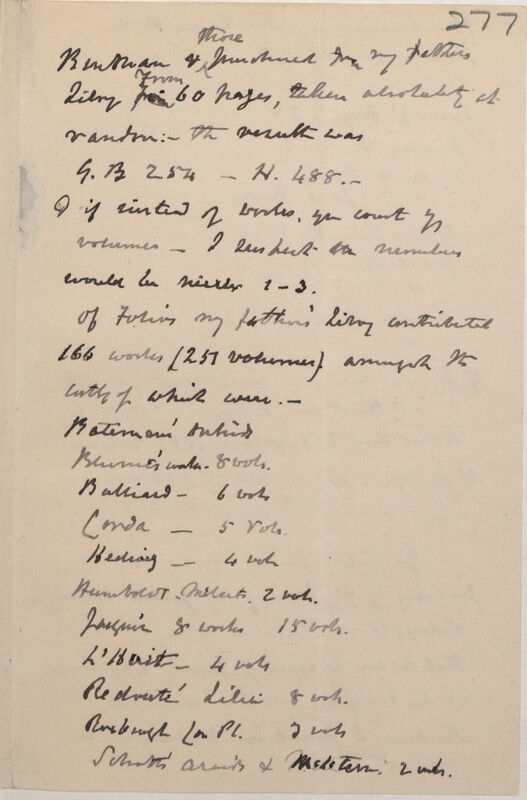 277
those
Bentham & purchased from my fathers
Library from 60 pages, taken absolutely at
random:- the result was
G. B 254 - H. 488.-
& if instead of works, you count by
volumes - I suspect the numbers
would be nearer 1-3.
Of Folios my father's Library contributed
166 works (251 volumes) amongst the
costly of which were.-
Bateman's Orchids
Blume's works. 8 vols.
Bulliard - 6 vols
Corda - 5 vols.
Hedwig - 4 vols
Humboldt - Melast. 2 vols.
Jacquin 8 works 15 vols.
L'Herit - 4 vols
Redouté Lilia 8 vols.
Roxburgh Cor Pl. 3 vols
Schott's Aroids & 2 vols.